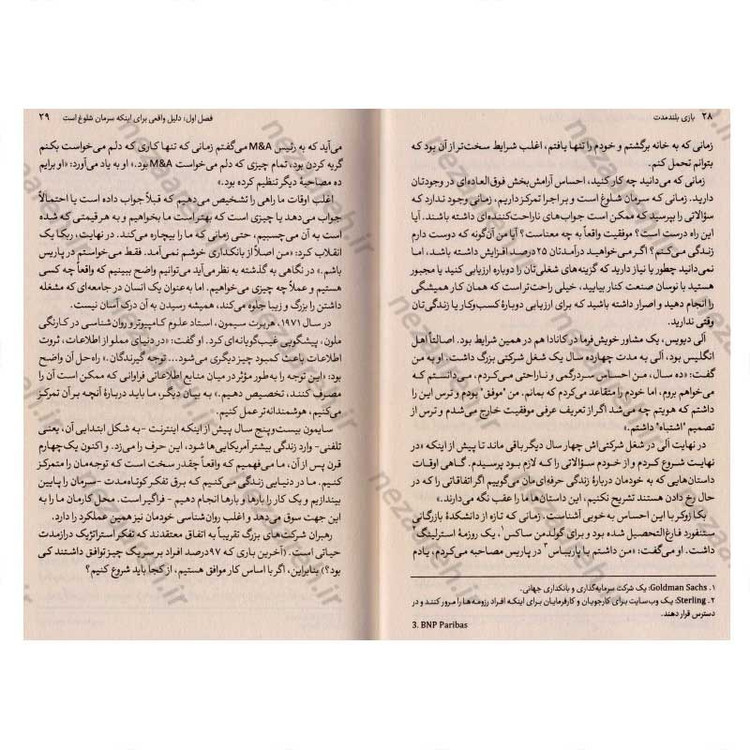 ۲۸ بازی بلندمدت
زمانی که به خانه برگشتم و خودم را تنها یافتم، اغلب شرایط سخت‌تر از آن بود که
بتوانم تحمل کنم.
زمانی که می‌دانید چه کار کنید، احساس آرامش‌بخش فوق‌العاده‌ای در وجودتان
دارید. زمانی که سرمان شلوغ است و بر اجرا تمرکز داریم، زمانی وجود ندارد که
سؤالاتی را بپرسید که ممکن است جواب‌های ناراحت‌کننده‌ای داشته باشند. آیا
این راه درست است؟ موفقیت واقعاً به چه معناست؟ آیا من آن‌گونه که دوست دارم
زندگی می‌کنم؟ اگر می‌خواهید درآمدتان ۲۵درصد افزایش داشته باشد، اما
نمی‌دانید چطور یا نیاز دارید که گزینه‌های شغلی‌تان را دوباره ارزیابی کنید یا مجبور
هستید با نوسان صنعت کنار بیایید، خیلی راحت‌تر است که همان کار همیشگی
را انجام دهید و اصرار داشته باشید که برای ارزیابی دوبارهٔ کسب‌وکار یا زندگی‌تان
وقتی ندارید.
آلی دیویس، یک مشاور خویش‌فرما در کانادا هم در همین شرایط بود. اصالتاً اهل
انگلیس بود، آلی به مدت چهارده سال یک شغل شرکتی بزرگ داشت؛ او به من
گفت: «ده سال، من احساس سردرگمی و ناراحتی می‌کردم، می‌دانستم که
می‌خواهم بروم، اما خودم را متقاعد می‌کردم که بمانم. من "موفق" بودم و ترس این را
داشتم که هویتم چه می‌شد اگر از تعریف عرفی موفقیت خارج می‌شدم و ترس از
تصمیم "اشتباه" داشتم.»
در نهایت آلی در شغل شرکتی‌اش چهار سال دیگر باقی ماند تا پیش از اینکه «در
نهایت شروع کردم و از خودم سؤالاتی را که لازم بود پرسیدم. گاهی اوقات
داستان‌هایی که به خودمان دربارهٔ زندگی حرفه‌ای‌مان می‌گوییم اگر اتفاقاتی را که در
حال رخ دادن هستند تشریح نکنیم، این داستان‌ها ما را عقب نگه می‌دارند.»
بکا زوکر با این احساس به خوبی آشناست. زمانی که تازه از دانشکدهٔ بازرگانی
ستنفورد فارغ‌التحصیل شده بود و برای گولدمن ساکس۱، یک روزمهٔ استرلینگ۲
داشت. او می‌گفت: «من داشتم با پاریباس۳ در پاریس مصاحبه می‌کردم، یادم
۱. Goldman Sachs: یک شرکت سرمایه‌گذاری و بانکداری جهانی.
۲. Sterling: یک وب‌سایت برای کارجویان و کارفرمایان برای اینکه افراد رزومه‌ها را مرور کنند و در
دسترس قرار دهند.
3. BNP Paribas
فصل اول: دلیل واقعی برای اینکه سرمان شلوغ است ۲۹
می‌آید که به رئیس M&A می‌گفتم زمانی که تنها کاری که دلم می‌خواست بکنم
گریه کردن بود، تمام چیزی که دلم می‌خواست M&A بود.» او به یاد می‌آورد: «او برایم
ده مصاحبهٔ دیگر تنظیم کرده بود.»
اغلب اوقات ما راهی را تشخیص می‌دهیم که قبلاً جواب داده است یا احتمالاً
جواب می‌دهد یا چیزی است که بهتر است ما بخواهیم و به هر قیمتی که شده
است به آن می‌چسبیم، حتی زمانی که ما را بیچاره می‌کند. در نهایت، ربکا یک
انقلاب کرد: «من اصلاً از بانکداری خوشم نمی‌آمد. فقط می‌خواستم در پاریس
باشم.» در نگاهی به گذشته به نظر می‌آید می‌توانیم واضح ببینیم که واقعاً چه کسی
هستیم و عملاً چه چیزی می‌خواهیم. اما به‌عنوان یک انسان در جامعه‌ای که مشغله
داشتن را بزرگ و زیبا جلوه می‌کند، همیشه رسیدن به آن درک آسان نیست.
در سال ۱۹۷۱، هربرت سیمون، استاد علوم کامپیوتر و روان‌شناسی در کارنگی
ملون، پیشگویی غیب‌گویانه‌ای کرد. او گفت: «در دنیای مملو از اطلاعات، ثروت
اطلاعات باعث کمبود چیز دیگری می‌شود... توجه گیرندگان.» راه‌حل آن واضح
بود: «این توجه را به‌طور مؤثر در میان منابع اطلاعاتی فراوانی که ممکن است آن را
مصرف کنند، تخصیص دهیم.» به بیان دیگر، ما باید دربارهٔ آنچه بر آن تمرکز
می‌کنیم، هوشمندانه‌تر عمل کنیم.
سایمون بیست‌وپنج سال پیش از اینکه اینترنت -به شکل ابتدایی آن، یعنی
تلفنی- وارد زندگی بیشتر آمریکایی‌ها شود، این حرف را می‌زد. و اکنون یک‌چهارم
قرن پس از آن، ما می‌فهمیم که واقعاً چقدر سخت است که توجه‌مان را متمرکز
کنیم. ما در دنیایی زندگی می‌کنیم که برق تفکر کوتاه‌مدت -سرمان را پایین
بیندازیم و یک کار را بارها و بارها انجام دهیم - فراگیر است. محل کارمان ما را به
این جهت سوق می‌دهد و اغلب روان‌شناسی خودمان نیز همین عملکرد را دارد.
رهبران شرکت‌های بزرگ تقریباً به اتفاق معتقدند که تفکر استراتژیک درازمدت
حیاتی است. (آخرین باری که ۹۷درصد افراد بر سر یک چیز توافق داشتند کی
بود؟) بنابراین، اگر با اساس کار موافق هستیم، از کجا باید شروع کنیم؟
nezaaveh.ir